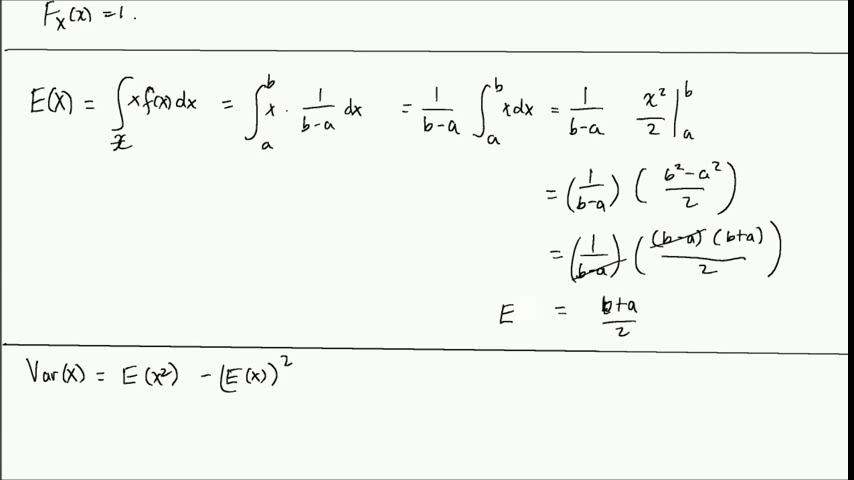 F_X(x) = 1.
E(X) = ∫_𝒳 x f(x) dx = ∫_a^b x · 1/(b-a) dx = 1/(b-a) ∫_a^b x dx = 1/(b-a) x²/2 |_a^b
= (1/(b-a)) ((b²-a²)/2)
= (1/(b-a)) ((b-a)(b+a)/2)
E = (b+a)/2
Var(X) = E(x²) - (E(x))²